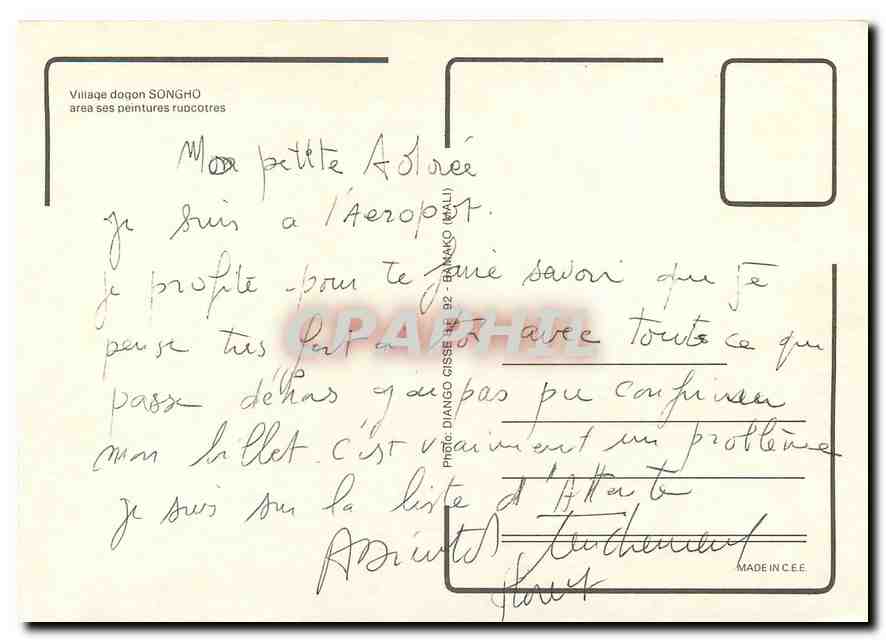 Village dogon SONGHO
area ses peintures rupcotres
Mon petite Adorée
je suis a l'Aeropot.
je profite pour te faire savoir que je
pense tres fort a toi avec toute ce qui
passe déhors j'ai pas pu confirmer
mon billet. c'est vraiment un problème
je suis sur la liste d'Attente
ABientot tendrement
Photo: DIANGO CISSE B.P. 92 - BAMAKO (MALI)
CPAPHIL
MADE IN C.E.E.